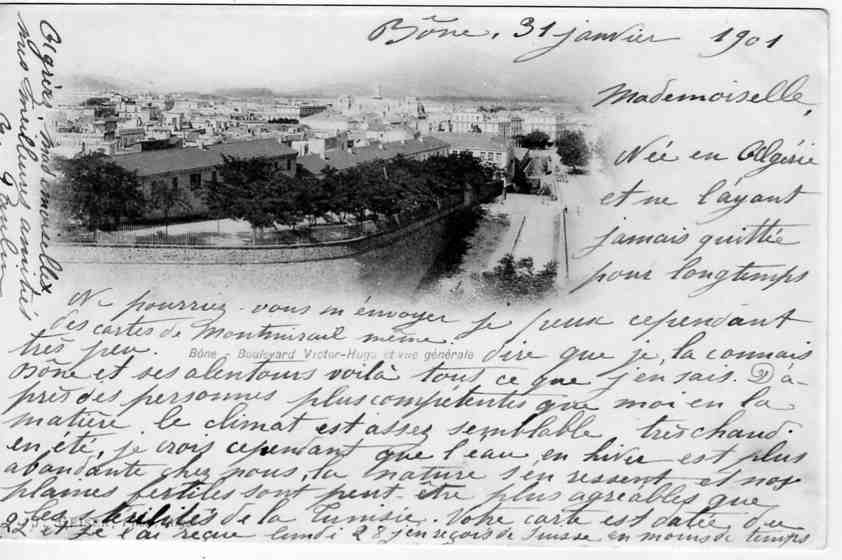 Bône, 31 janvier 1901
Mademoiselle,
Née en Algérie
et ne l'ayant
jamais quittée
pour longtemps
je peux cependant
dire que je la connais
très peu.
Bône et ses alentours voilà tout ce que j'en sais. D'a-
près des personnes plus compétentes que moi en la
matière le climat est assez semblable très chaud.
en été, je crois cependant que l'eau en hiver est plus
abondante chez nous, la nature s'en ressent et nos
plaines fertiles sont peut-être plus agréables que
les de la Tunisie. Votre carte est datée du
22 et je l'ai reçue lundi 28 j'en reçois de Suisse en moins de temps
Ne pourriez-vous m'envoyer
des cartes de Montmirail même.
Bône - Boulevard Victor-Hugo et vue générale
Agréez, Mademoiselle
mes meilleures amitiés